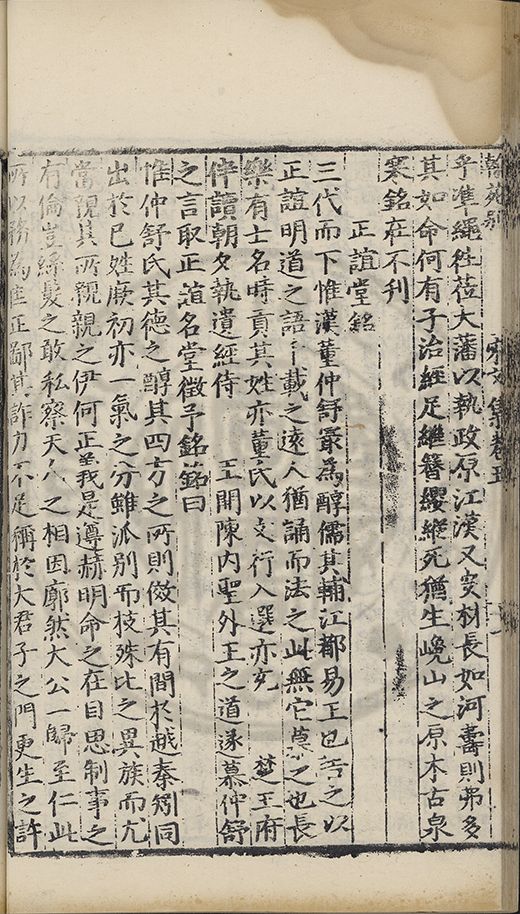 翰苑别
宋文集卷五
乎準繩往莅大藩以執政原江漢又安材長如河壽則弗多
其如命何有子治經足繼簪纓縱死猶生巉山之原木古泉
寒銘在不刊
正誼堂銘
三代而下惟漢董仲舒最為醇儒其輔江都易王也告之以
正誼明道之語千載之遠人猶誦而法之此無它莫之也長
樂有士名時貢其姓亦董氏以文行入選亦充 楚王府
伴讀朝夕執遺經侍 王開陳内聖外王之道遂慕仲舒
之言取正誼名堂徵予銘銘曰
惟仲舒氏其德之醇其四方之所則傚其有間於越秦矧同
出於巳姓厥初亦一氣之分雖派别而枝殊比之異族而尤
當親其所親親之伊何正我是遵赫明命之在目思制事之
有倫豈絲髮之敢私察天人之相因廓然大公一歸至仁此
所以務為雅正鄙其詐力不足稱於大君子之門更生之許